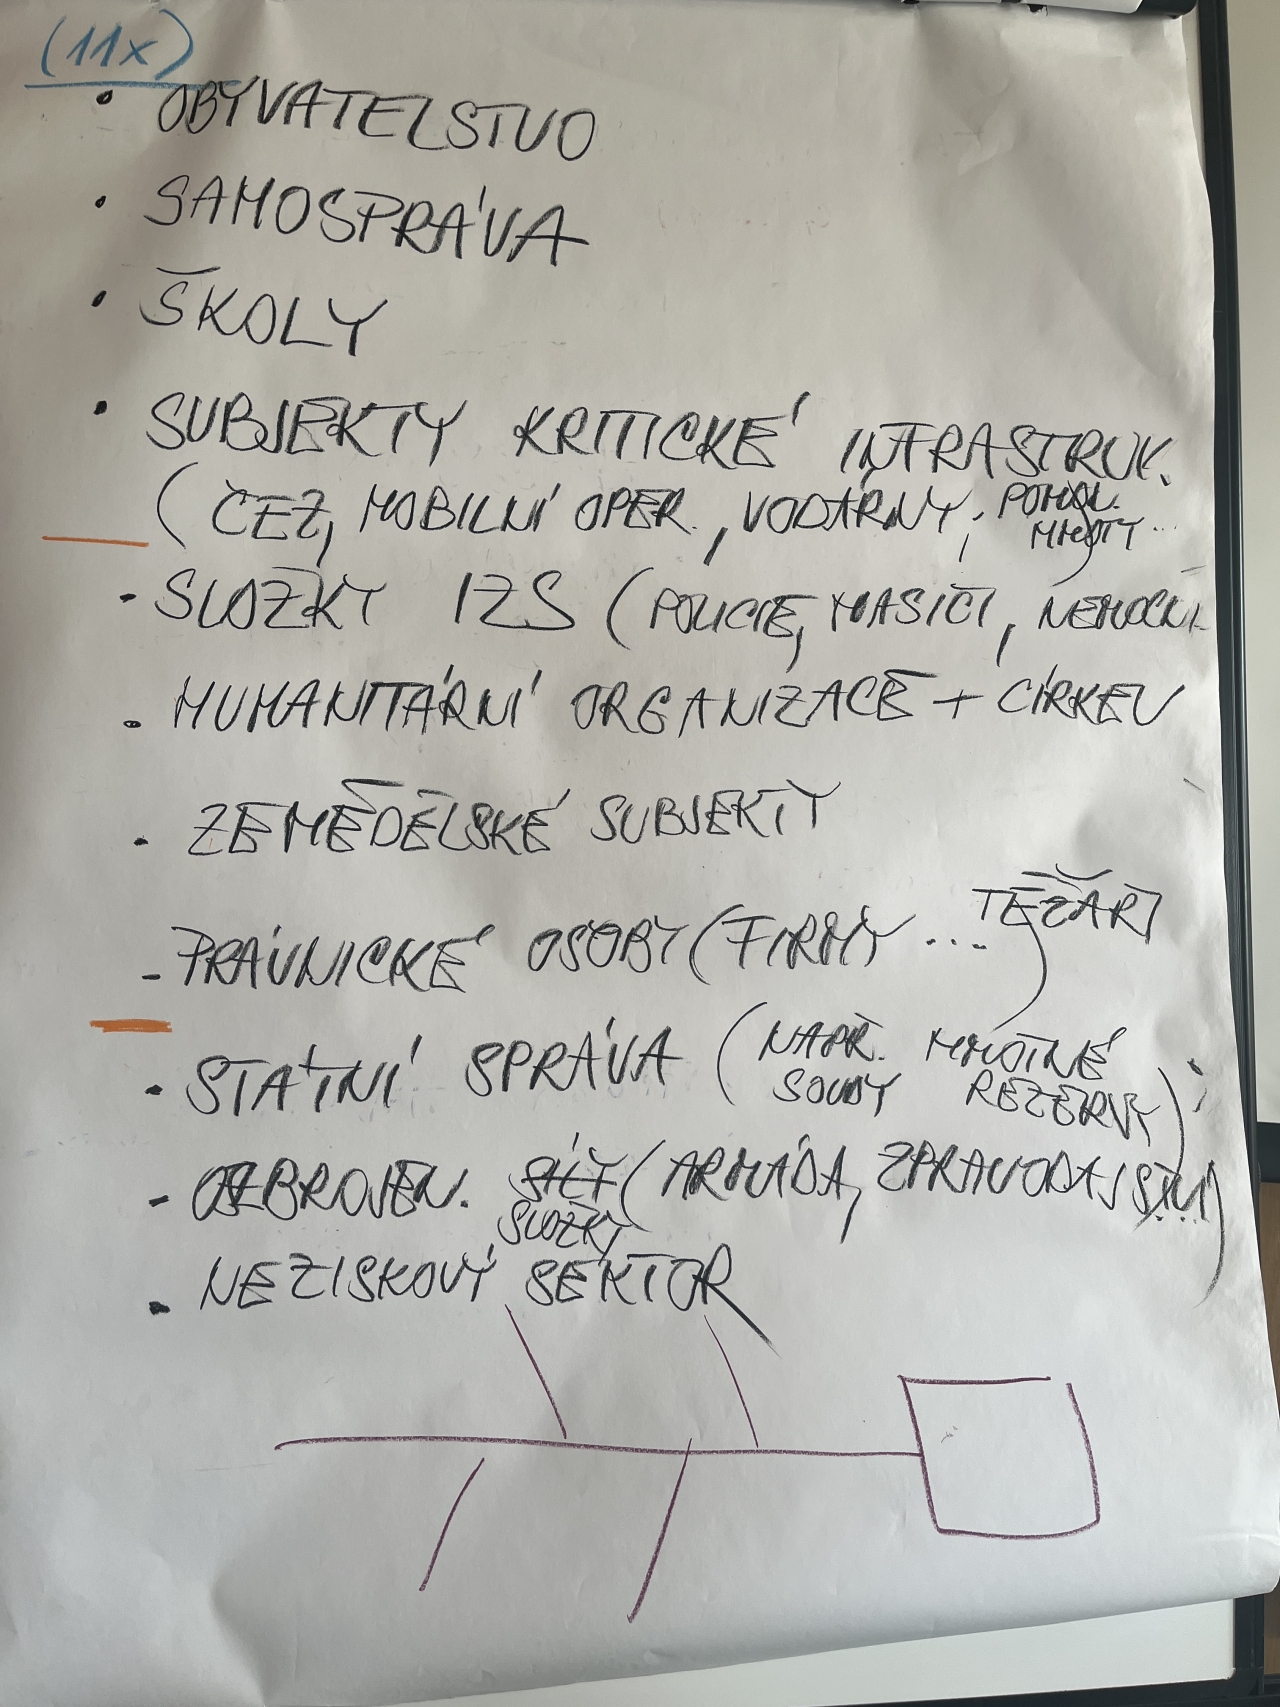 (11x)
• OBYVATELSTVO
• SAMOSPRÁVA
• ŠKOLY
• SUBJEKTY KRITICKÉ INFRASTRUK.
(ČEZ, MOBILNÍ OPER., VODÁRNY; POHON.
HMOTY...)
- SLOŽKY IZS (POLICIE, HASIČI, NEMOCNI
. HUMANITÁRNÍ ORGANIZACE + CÍRKEV
. ZEMĚDĚLSKÉ SUBJEKTY
- PRÁVNICKÉ OSOBY (FIRMY ... TĚŽAŘI)
. STÁTNÍ SPRÁVA (NAPŘ. HMOTNÉ
SOUDY REZERVY)
- OZBROJEN. SÍLY (ARMÁDA, ZPRAVODAJSTVÍ)
SLOŽKY
. NEZISKOVÝ SEKTOR